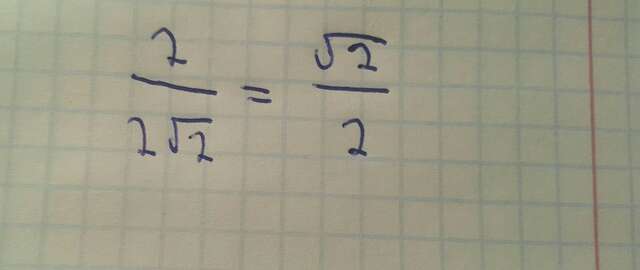 2/(2√2) = √2/2